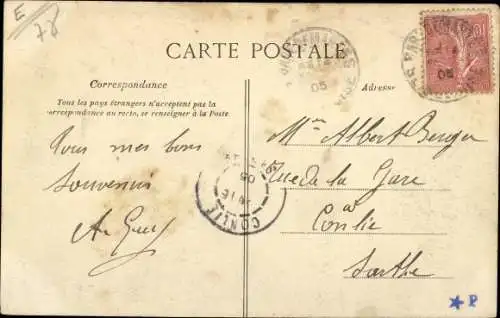 E
78
CARTE POSTALE
Correspondance
Adresse
Tous les pays étrangers n'acceptent pas la
correspondance au recto, se renseigner à la Poste
Tous mes bons
Souvenirs
Mme Albert Berger
Rue de la Gare
à
Conlie
Sarthe
05
05
05
CONLIE
10
★ P